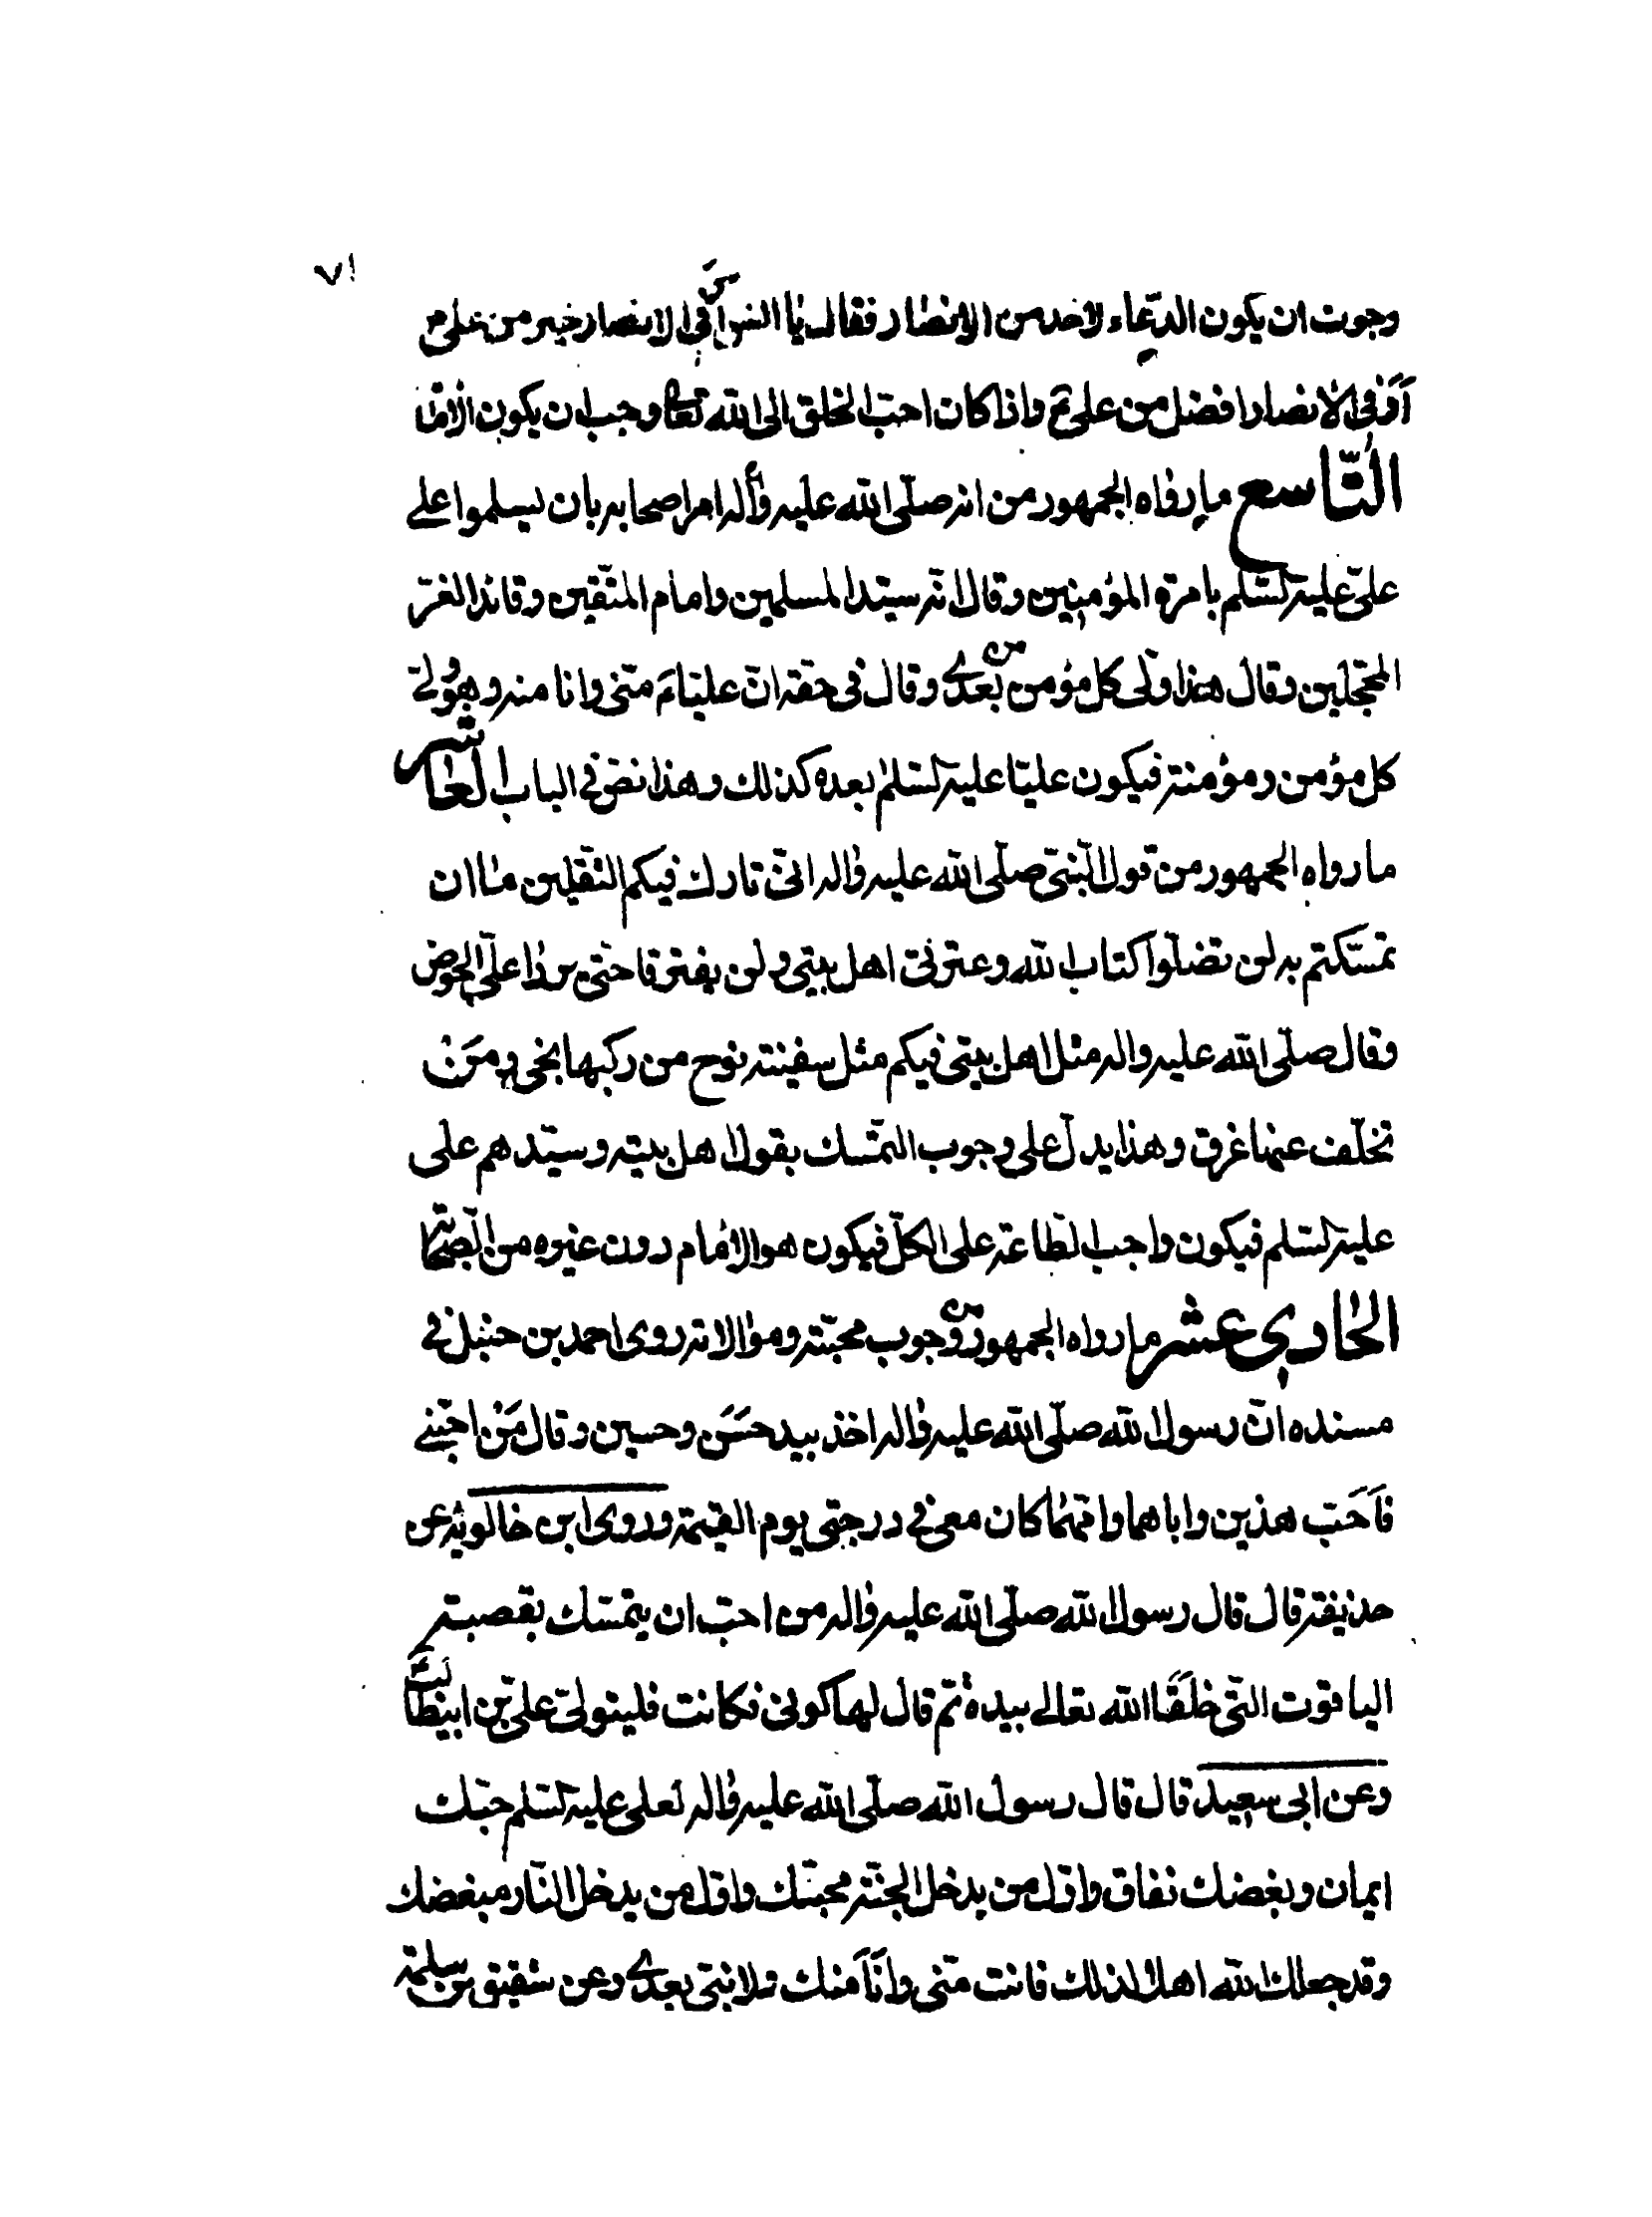 ٧١
وجوت ان يكون الدعاء لاحد من الانصار فقال يا انس أو في الانصار خير من علي
أو في الانصار افضل من علي ع واذا كان احب الخلق الى الله تعا وجب ان يكون الامام
التاسع ما رواه الجمهور من انه صلى الله عليه وآله امر اصحابه بان يسلموا على
علي عليه السلم بامرة المؤمنين وقال انه سيد المسلمين وامام المتقين وقائد الغر
المحجلين وقال هذا ولى كل مؤمن من بعدي وقال فى حقه ان عليا منى وانا منه وهو ولي
كل مؤمن ومؤمنة فيكون عليا عليه السلم بعده كذلك وهذا نص في الباب العاشر
ما رواه الجمهور من قول النبى صلى الله عليه واله انى تارك فيكم الثقلين ما ان
تمسكتم به لن تضلوا كتاب الله وعترتى اهل بيتى ولن يفترقا حتى يردا على الحوض
وقال صلى الله عليه واله مثل اهل بيتى فيكم مثل سفينة نوح من ركبها نجى ومن
تخلف عنها غرق وهذا يدل على وجوب التمسك بقول اهل بيته وسيدهم على
عليه السلم فيكون واجب الطاعة على الكل فيكون هو الامام دون غيره من الصحابة
الحادي عشر ما رواه الجمهور من وجوب محبته وموالاته روى احمد بن حنبل في
مسنده ان رسول الله صلى الله عليه واله اخذ بيد حسن وحسين وقال من احبنے
فاحب هذين واباهما وامهما كان معى في درجتى يوم القيمة وروى ابن خالويه عن
حذيفة قال قال رسول الله صلى الله عليه واله من احب ان يتمسك بقصبة
الياقوت التى خلقا الله تعالے بيده ثم قال لها كونى فكانت فليتولى على بن ابيطالب
وعن ابى سعيد قال قال رسول الله صلى الله عليه واله لعلى عليه السلم حبك
ايمان وبغضك نفاق واول من يدخل الجنة محبك واول من يدخل النار مبغضك
وقد جعلك الله اهلا لذلك فانت منى وانا منك ولا نبى بعدے وعن شقيق بن سلمة